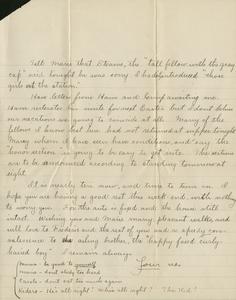 Tell Marie that Evans, the "tall fellow with the gray
cap" said tonight he was sorry I hadn't introduced "those
girls at the station."
Have letter from Ham and being awaiting me.
Ham reiterates his invite for next Easter but I don't believe
our vacations are going to coincide at all. Many of the
fellows I know best him had not returned at supper tonight
many whom I have seen have conditions, and say the
"honor section" is going to be easy to get into. The sections
are to be announced according to standing tomorrow at
eight.
It is nearly ten now, and time to turn in. I
hope you are having a good rest this week and with nothing
to worry you. For the arts is good and the house still
intact. Wishing you and Marie many pleasant walks, and
will love to Fredero and the rest of you and a speedy con-
valescence to the ailing brother, the "happy faced curly
haired boy" I remain always
Your
Mamma - be good to yourself
Marie - don't study too hard
Carols - don't eat too much again
Federo - He's all right! Who's all right? The Kid!